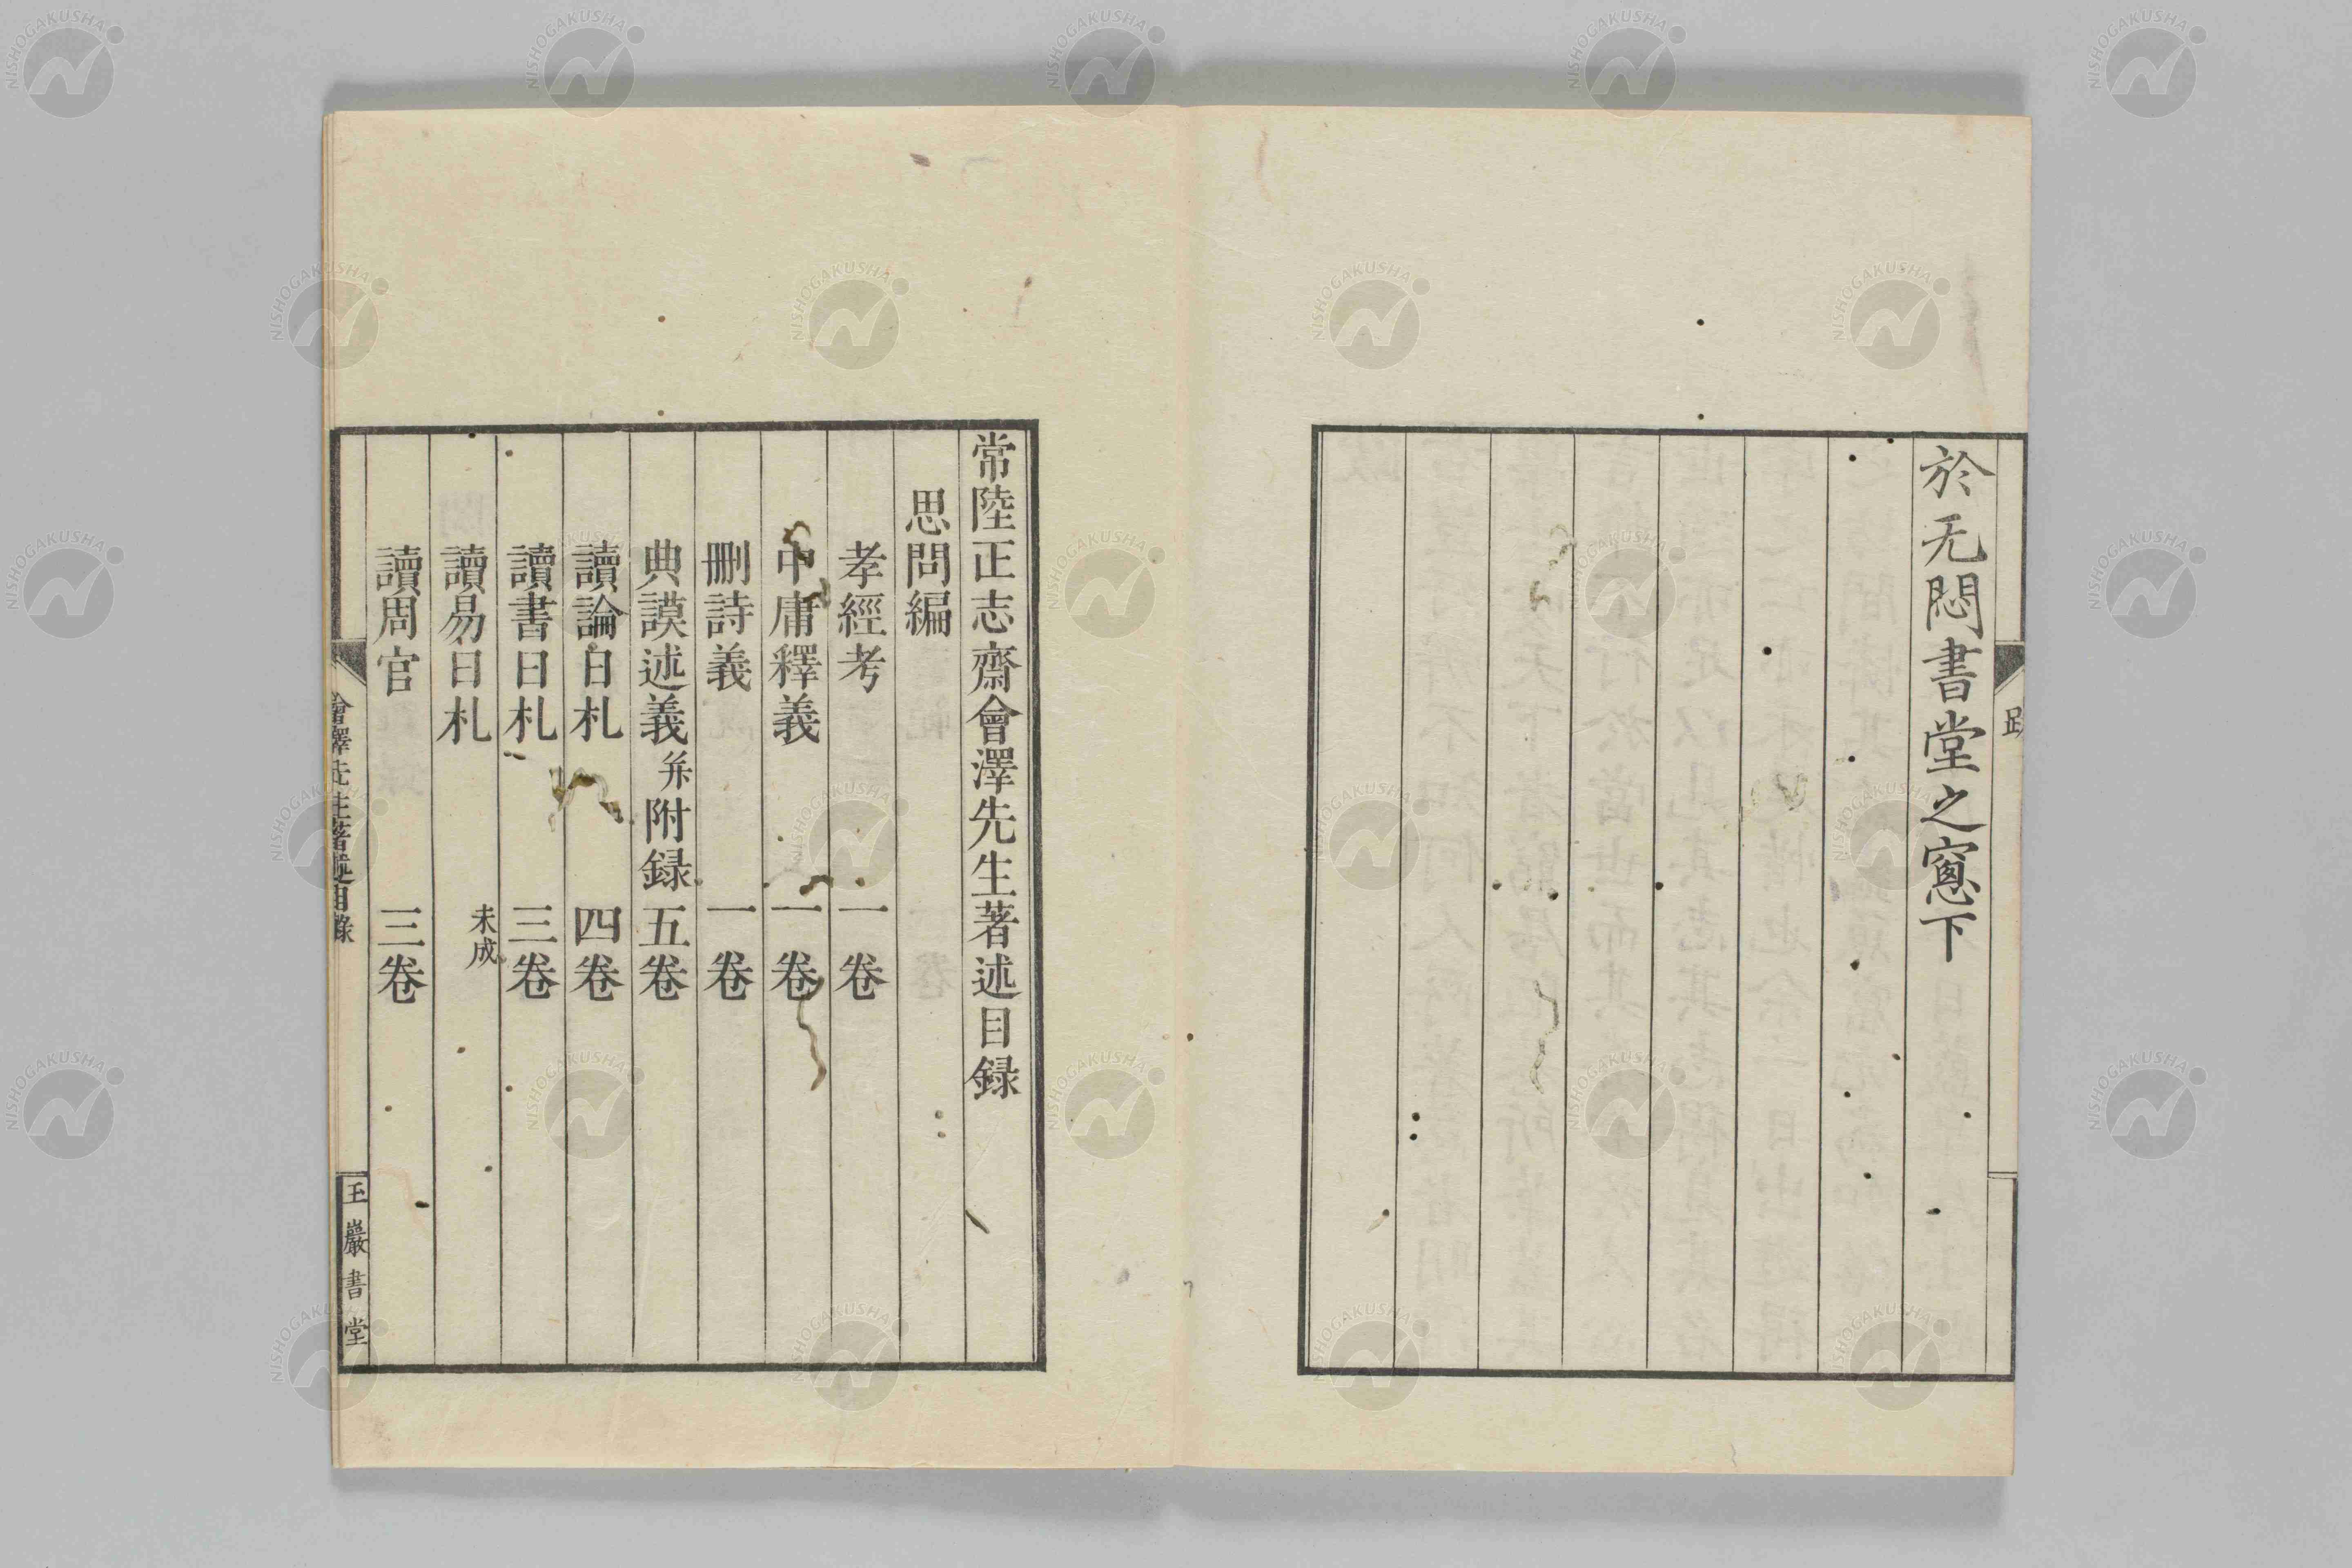 於无悶書堂之窻下
跋
常陸正志齋會澤先生著述目録
思問編
孝經考 一卷
中庸釋義 一卷
刪詩義 一卷
典謨述義 并附録 五卷
讀論日札 四卷
讀書日札 三卷
讀易日札 未成
讀周官 三卷
會澤先生著述目錄
玉巖書堂
NISHOGAKUSHA